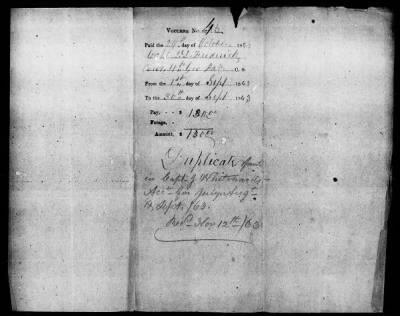 VOUCHER No. 45
Paid the 24th day of October 1863
Capt
Comy 11th Geo
From the 1st day of Sept 1863
To the 30th day of Sept 1863
Pay, - - $ 130.00
Forage, -
Amount, $ 130.00
Duplicate found
in Capt. J Whitehead's
Acct for July, Aug
& Sept /63.
Recd Nov 12th /63